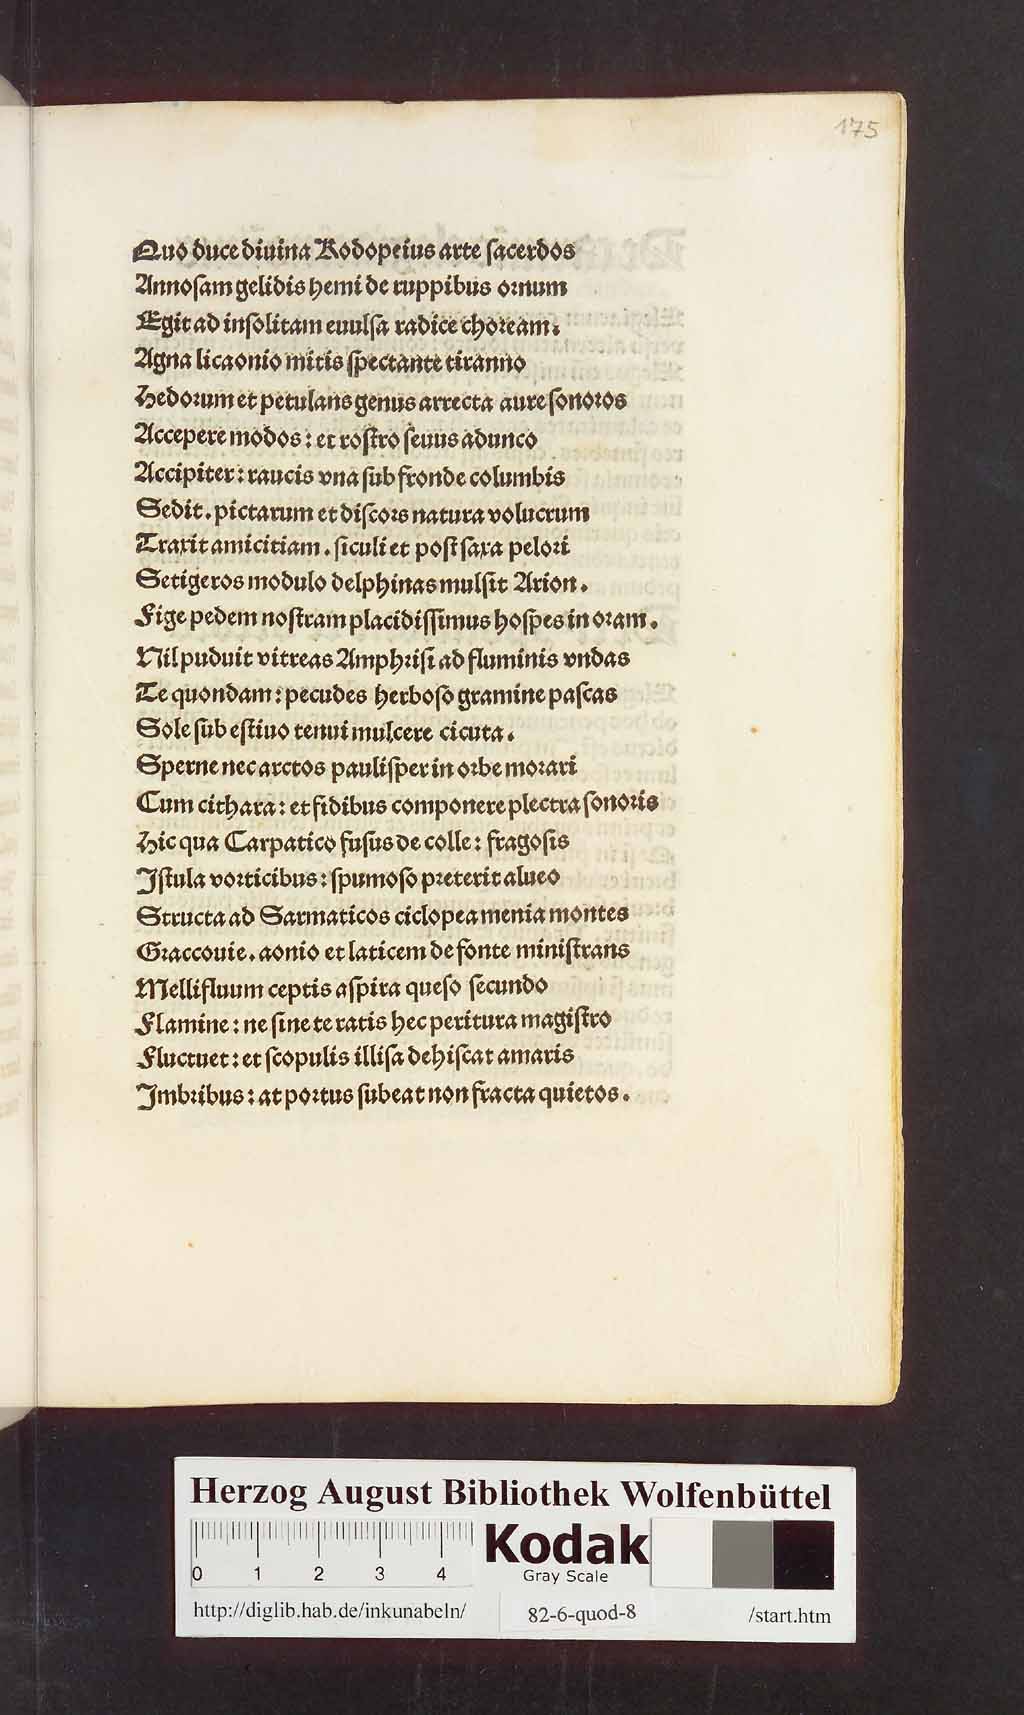 175
Quo duce diuina Rodopeius arte sacerdos
Annosam gelidis hemi de ruppibus ornum
Egit ad insolitam euulsa radice choream.
Agna licaonio mitis spectante tiranno
Hedorum et petulans genus arrecta aure sonoros
Accepere modos: et rostro seuus adunco
Accipiter: raucis vna sub fronde columbis
Sedit. pictarum et discors natura volucrum
Traxit amicitiam. siculi et post saxa pelori
Setigeros modulo delphinas mulsit Arion.
Fige pedem nostram placidissimus hospes in oram.
Nil puduit vitreas Amphrisi ad fluminis vndas
Te quondam: pecudes herboso gramine pascas
Sole sub estiuo tenui mulcere cicuta.
Sperne nec arctos paulisper in orbe morari
Cum cithara: et fidibus componere plectra sonoris
Hic qua Carpatico fusus de colle: fragosis
Istula vorticibus: spumoso preterit alueo
Structa ad Sarmaticos ciclopea menia montes
Graccouie. aonio et laticem de fonte ministrans
Mellifluum ceptis aspira queso secundo
Flamine: ne sine te ratis hec peritura magistro
Fluctuet: et scopulis illisa dehiscat amaris
Imbribus: at portus subeat non fracta quietos.
Herzog August Bibliothek Wolfenbüttel
0 1 2 3 4
Kodak
Gray Scale
http://diglib.hab.de/inkunabeln/ 82-6-quod-8 /start.htm